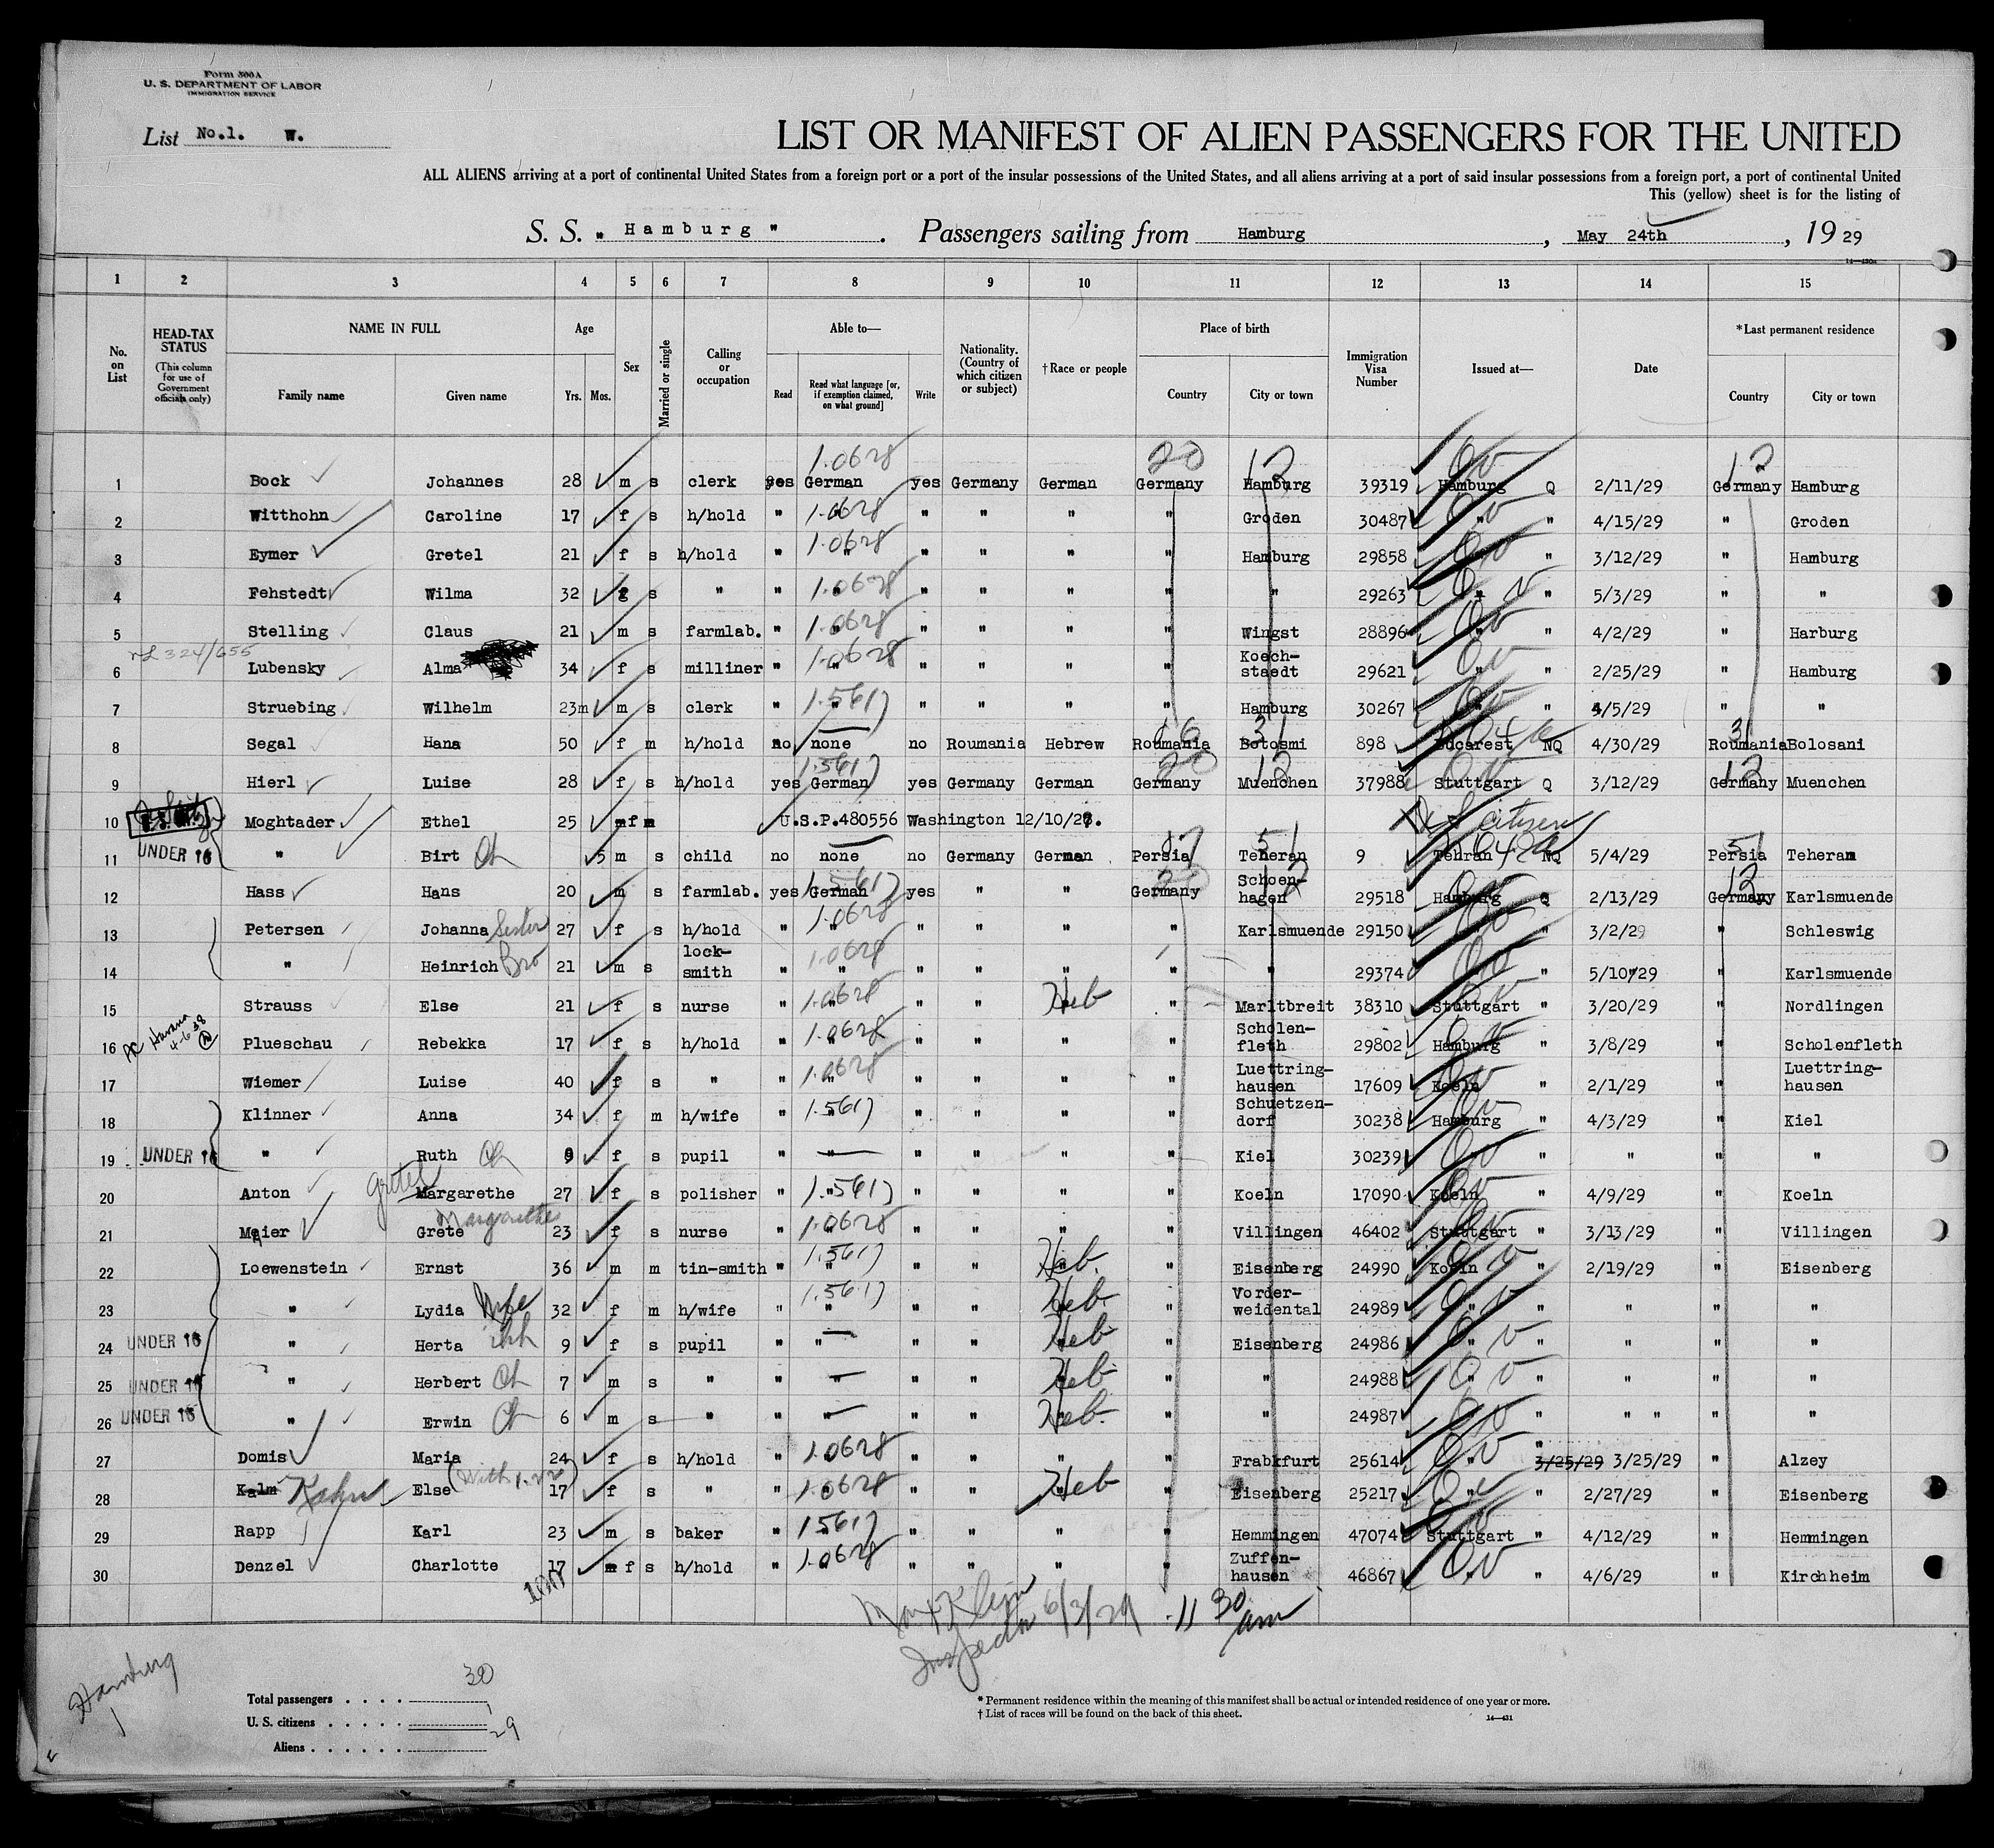 Form 500 A
U. S. DEPARTMENT OF LABOR
IMMIGRATION SERVICE
List No.1. W.
LIST OR MANIFEST OF ALIEN PASSENGERS FOR THE UNITED
ALL ALIENS arriving at a port of continental United States from a foreign port or a port of the insular possessions of the United States, and all aliens arriving at a port of said insular possessions from a foreign port, a port of continental United
This (yellow) sheet is for the listing of
S. S. " Hamburg " . Passengers sailing from Hamburg , May 24th , 19 29
1 2 3 4 5 6 7 8 9 10 11 12 13 14 15
No. on List HEAD-TAX STATUS (This column for use of Government officials only) NAME IN FULL Family name Given name Age Yrs. Mos. Sex Married or single Calling or occupation Able to— Read Read what language [or, if exemption claimed, on what ground] Write Nationality. (Country of which citizen or subject) †Race or people Place of birth Country City or town Immigration Visa Number Issued at— Date *Last permanent residence Country City or town
1.0628 20 12 12
1 Bock Johannes 28 m s clerk yes German yes Germany German Germany Hamburg 39319 Hamburg Q 2/11/29 Germany Hamburg
2 Witthohn Caroline 17 f s h/hold " 1.0628 " " " " Groden 30487 " " 4/15/29 " Groden
3 Eymer Gretel 21 f s h/hold " 1.0628 " " " " Hamburg 29858 " " 3/12/29 " Hamburg
4 Fehstedt Wilma 32 f s " " 1.0628 " " " " " 29263 " " 5/3/29 " "
5 Stelling Claus 21 m s farmlab. " 1.0628 " " " " Wingst 28896 " " 4/2/29 " Harburg
324/655
6 Lubensky Alma 34 f s milliner " 1.0628 " " " " Koech-staedt 29621 " " 2/25/29 " Hamburg
7 Struebing Wilhelm 23m m s clerk " 1.5617 " " " " Hamburg 30267 " " 4/5/29 " "
8 Segal Hana 50 f m h/hold no none no Roumania Hebrew Roumania Botosmi 898 Bucarest NQ 4/30/29 Roumania Bolosani
9 Hierl Luise 28 f s h/hold yes 1.5617 German yes Germany German Germany Muenchen 37988 Stuttgart Q 3/12/29 Germany Muenchen
10 Moghtader Ethel 25 f m U.S.P.480556 Washington 12/10/28. U S citizen
11 UNDER 16 " Birt Ch 5 m s child no none no Germany German Persia Teheran 9 Tehran NQ 5/4/29 Persia Teheran
12 Hass Hans 20 m s farmlab. yes 1.5617 German yes " " Germany Schoen-hagen 29518 Hamburg Q 2/13/29 Germany Karlsmuende
13 Petersen Johanna Sister 27 f s h/hold " 1.0628 " " " " Karlsmuende 29150 " " 3/2/29 " Schleswig
14 " Heinrich Bro 21 m s lock-smith " 1.0628 " " " " " 29374 " " 5/10/29 " Karlsmuende
15 Strauss Else 21 f s nurse " 1.0628 " " Heb " Marltbreit 38310 Stuttgart " 3/20/29 " Nordlingen
Havana 4-6-38
16 Plueschau Rebekka 17 f s h/hold " 1.0628 " " " " Scholen-fleth 29802 Hamburg " 3/8/29 " Scholenfleth
17 Wiemer Luise 40 f s " " 1.0628 " " " " Luettring-hausen 17609 Koeln " 2/1/29 " Luettring-hausen
18 Klinner Anna 34 f m h/wife " 1.5617 " " " " Schuetzen-dorf 30238 Hamburg " 4/3/29 " Kiel
19 UNDER 16 " Ruth Ch 9 f s pupil " " " " " " Kiel 30239 " " " " "
20 Anton Gretel Margarethe 27 f s polisher " 1.5617 " " " " Koeln 17090 Koeln " 4/9/29 " Koeln
21 Maier Grete Margarethe 23 f s nurse " 1.0628 " " " " Villingen 46402 Stuttgart " 3/13/29 " Villingen
22 Loewenstein Ernst 36 m m tin-smith " 1.5617 " " Heb. " Eisenberg 24990 Koeln " 2/19/29 " Eisenberg
23 " Lydia Wife 32 f m h/wife " 1.5617 " " Heb. " Vorder-weidental 24989 " " " " "
24 UNDER 16 " Herta 9 f s pupil " " " " Heb " Eisenberg 24986 " " " " "
25 UNDER 16 " Herbert Ch 7 m s " " " " " Heb " " 24988 " " " " "
26 UNDER 16 " Erwin Ch 6 m s " " " " " Heb. " " 24987 " " " " " "
27 Domis Maria 24 f s h/hold " 1.0628 " " " " Frabkfurt 25614 " " 3/25/29 3/25/29 " Alzey
28 Kalm Kahn Else (With 1-22) 17 f s " " 1.0628 " " Heb " Eisenberg 25217 " " 2/27/29 " Eisenberg
29 Rapp Karl 23 m s baker " 1.5617 " " " " Hemmingen 47074 Stuttgart " 4/12/29 " Hemmingen
30 Denzel Charlotte 17 f s h/hold " 1.0628 " " " " Zuffen-hausen 46867 " " 4/6/29 " Kirchheim
Max Klein 6/3/29 -11 30 am
Inspector
Hamburg
1
Total passengers . . . . 30
U. S. citizens . . . . . 1
Aliens . . . . . . 29
* Permanent residence within the meaning of this manifest shall be actual or intended residence of one year or more.
† List of races will be found on the back of this sheet.
14—431